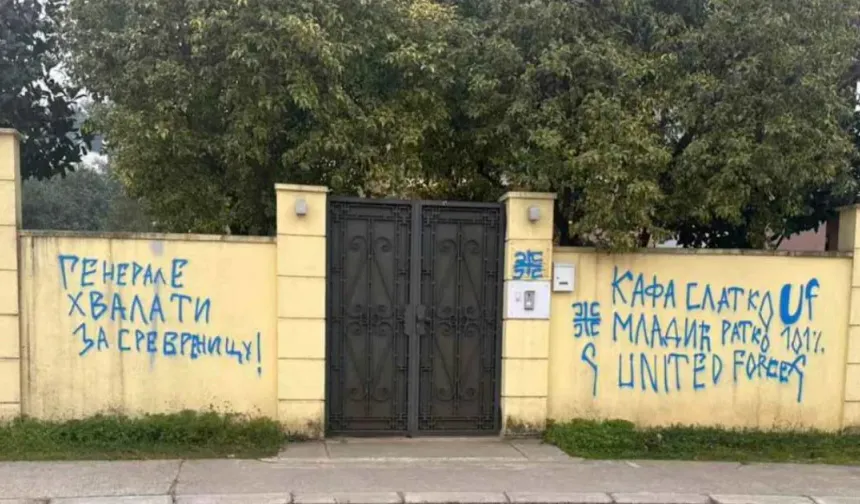 ГЕНЕРАЛЕ
ХВАЛА ТИ
ЗА СРЕБРЕНИЦУ!
КАФА СЛАТКО
МЛАДИЋ РАТКО
UNITED FORCES
UF
101%